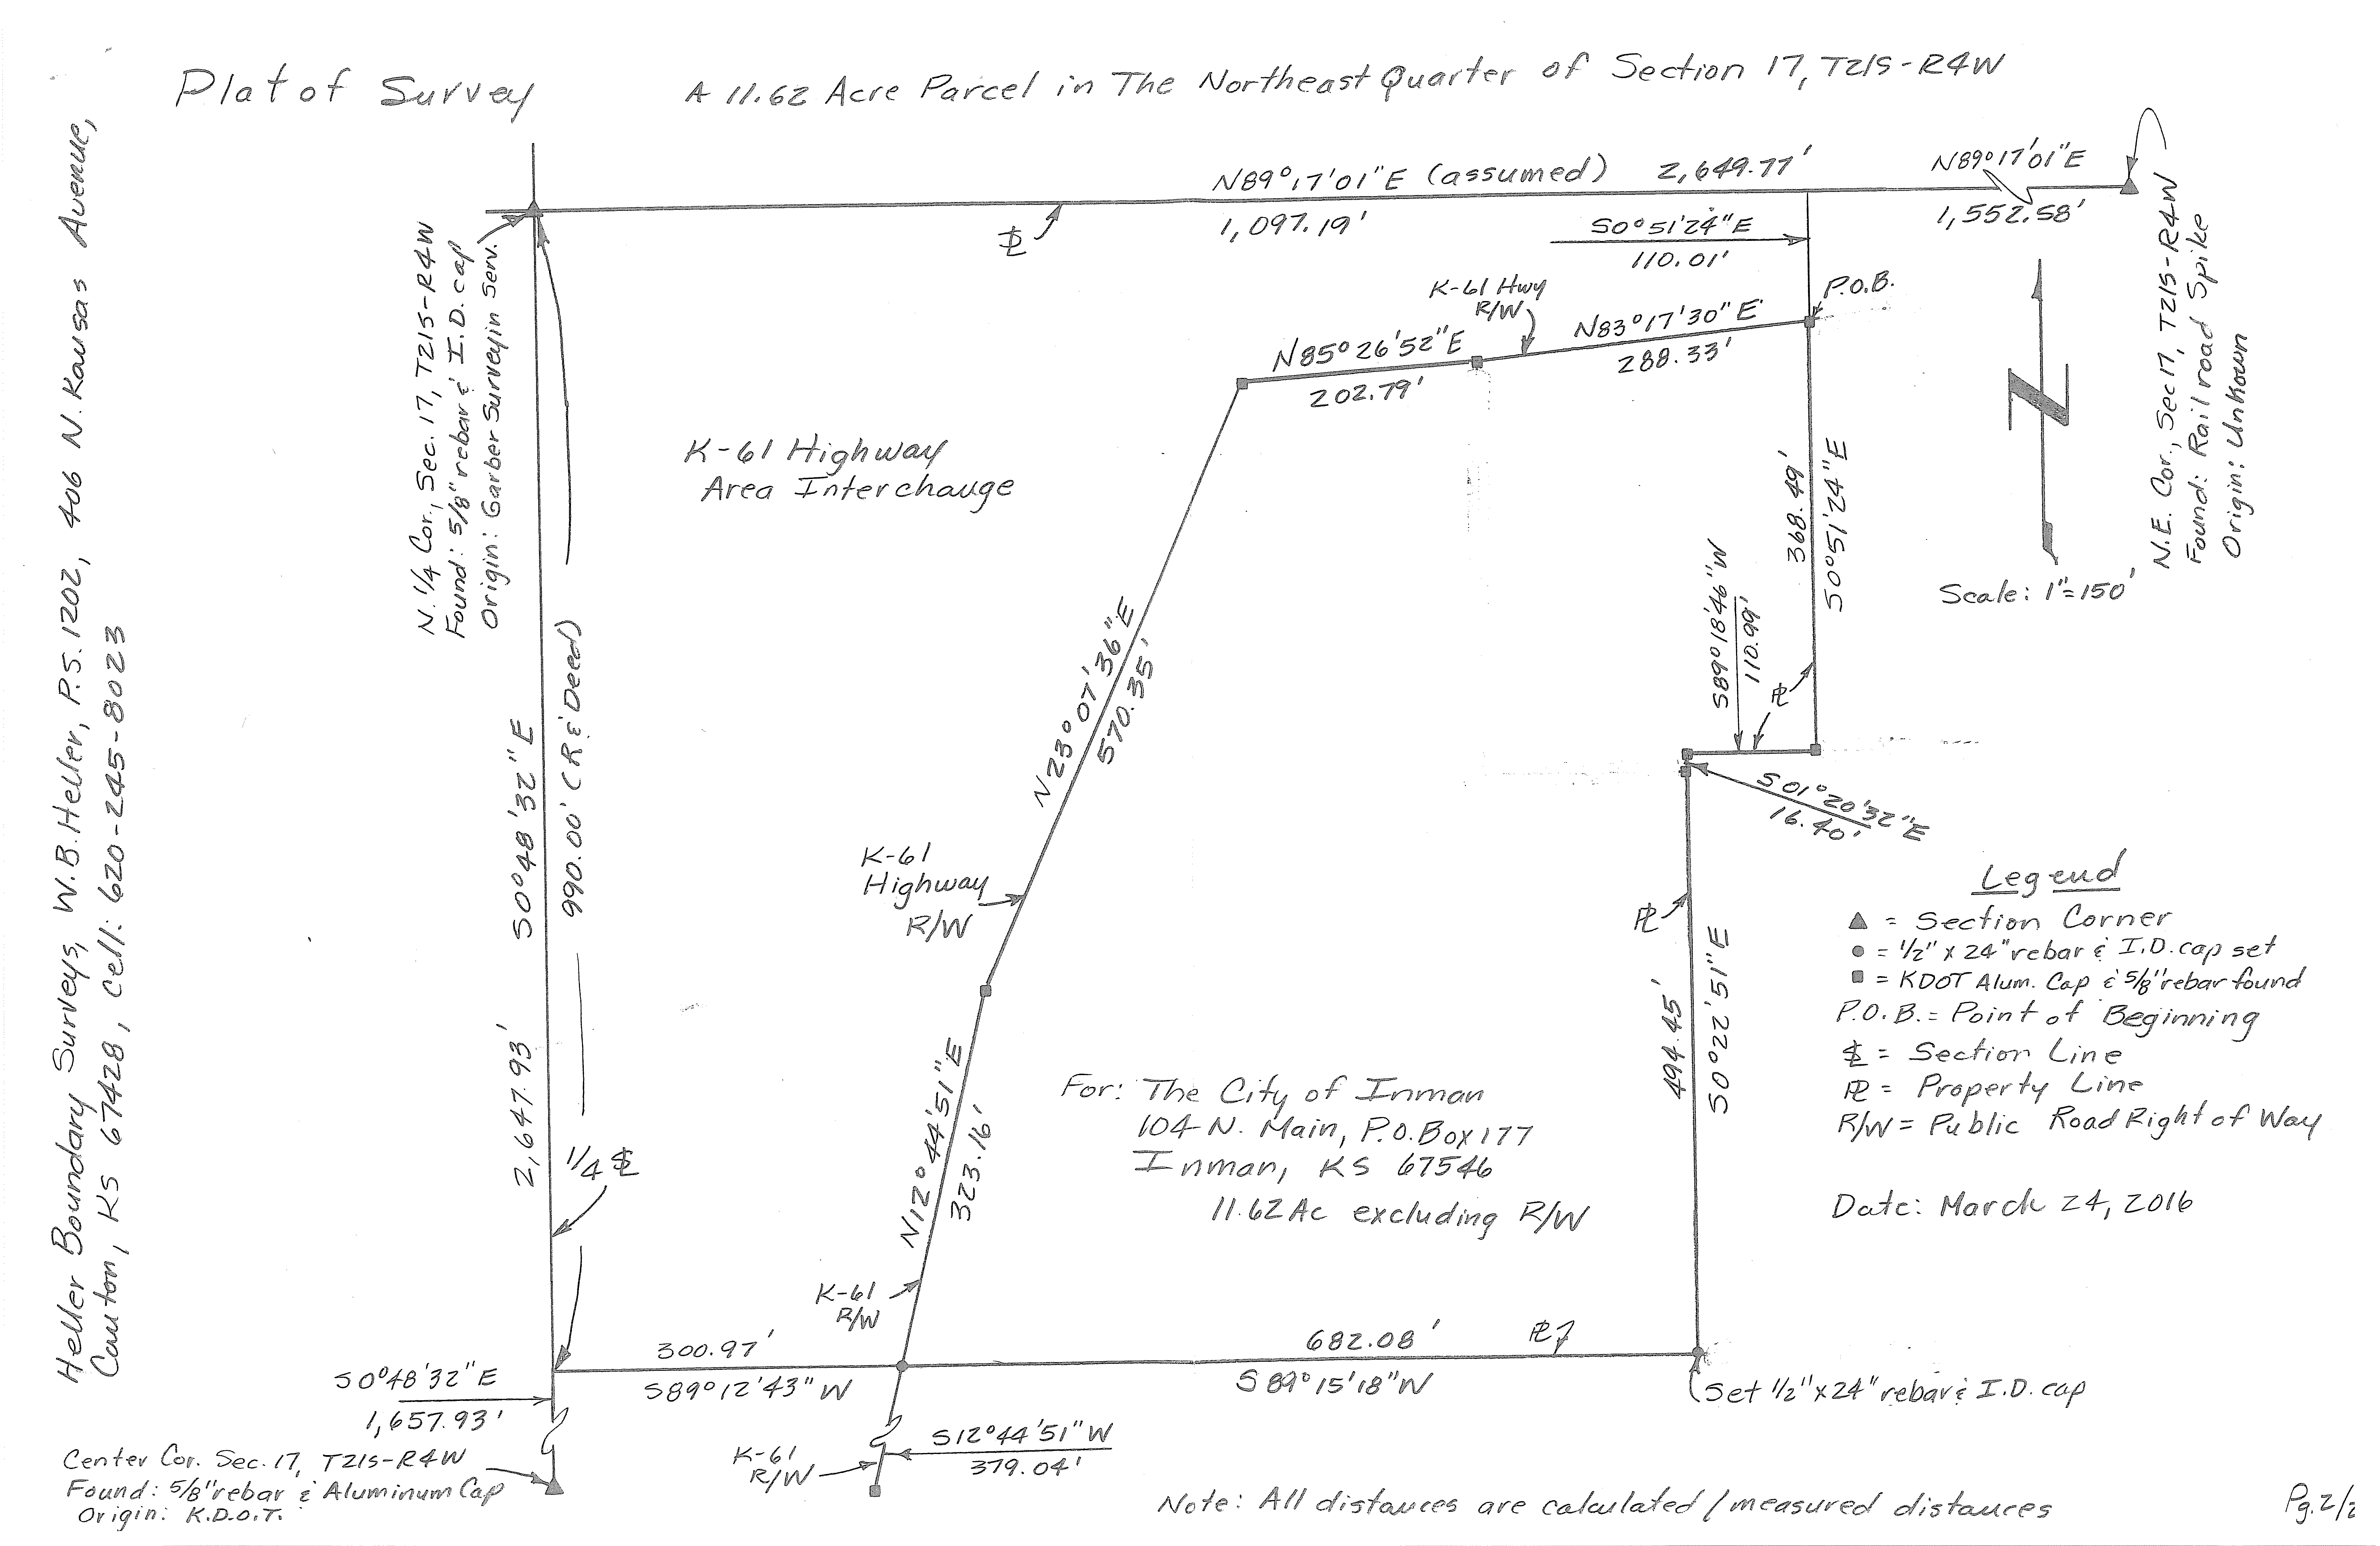 Plat of Survey
A 11.62 Acre Parcel in The Northeast Quarter of Section 17, T21S-R4W
Heller Boundary Surveys, W.B. Heller, P.S. 1202, 406 N. Kansas Avenue,
Canton, KS 67428, Cell: 620-245-8023
N89°17'01"E (assumed) 2,649.77'
1,097.19'
N89°17'01"E
1,552.58'
S0°51'24"E
110.01'
P.O.B.
N. 1/4 Cor., Sec. 17, T21S-R4W
Found: 5/8" rebar & I.D. cap
Origin: Garber Surveyin Serv.
N.E. Cor., Sec 17, T21S-R4W
Found: Rail road Spike
Origin: Unkown
K-61 Hwy
R/W
N85°26'52"E
202.79'
N83°17'30"E
288.33'
K-61 Highway
Area Interchange
368.49'
S0°51'24"E
S89°18'46"W
110.99'
PL
Scale: 1"=150'
S01°20'32"E
16.40'
N23°07'36"E
570.35'
S0°48'32"E
990.00' (R & Deed)
2,647.93'
1/4 SL
K-61
Highway
R/W
PL
494.45'
S0°22'51"E
Legend
▲ = Section Corner
● = 1/2" x 24" rebar & I.D. cap set
■ = KDOT Alum. Cap & 5/8" rebar found
P.O.B. = Point of Beginning
SL = Section Line
PL = Property Line
R/W = Public Road Right of Way
Date: March 24, 2016
N12°44'51"E
323.16'
For: The City of Inman
104 N. Main, P.O. Box 177
Inman, KS 67546
11.62 Ac excluding R/W
K-61
R/W
300.97'
S89°12'43"W
682.08'
PL
S89°15'18"W
Set 1/2" x 24" rebar & I.D. cap
S0°48'32"E
1,657.93'
Center Cor. Sec. 17, T21S-R4W
Found: 5/8" rebar & Aluminum Cap
Origin: K.D.O.T.
K-61
R/W
S12°44'51"W
379.04'
Note: All distances are calculated/measured distances
Pg. 2/2